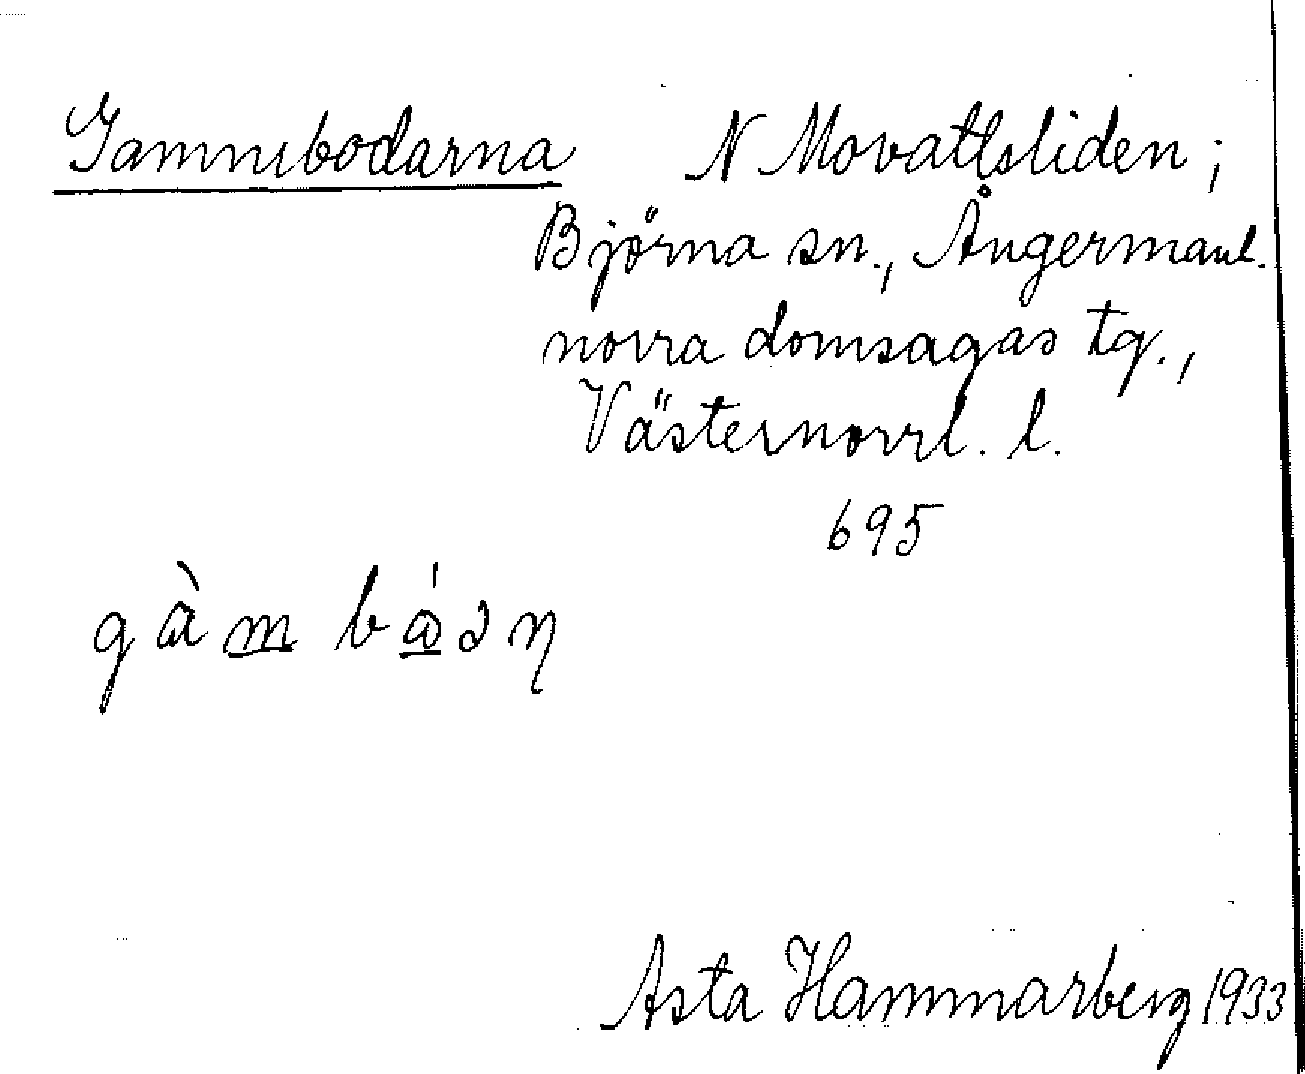 Gammbodarna N Movattsliden;
Björna sn., Ångermanl.
norra domsagas tg.,
Västernorrl. l.
695
gàm bá̱ən
Asta Hammarberg 1933